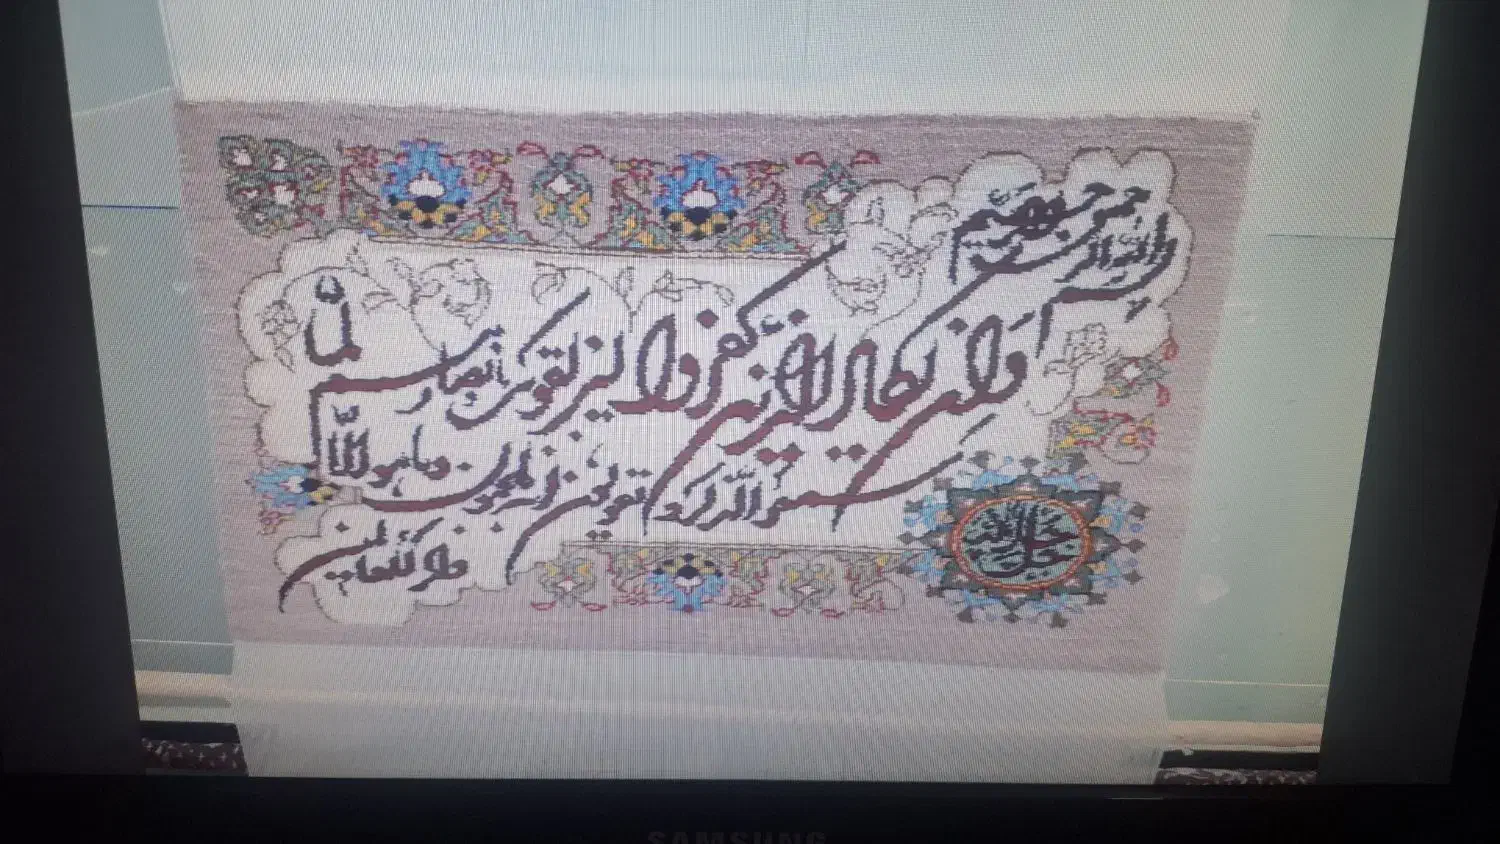 بسم الله الرحمن الرحیم
وان یکاد الذین کفروا لیزلقونک بابصارهم لما
سمعوا الذکر و یقولون انه لمجنون وما هو الا
ذکر للعالمین
جل جلاله
SAMSUNG